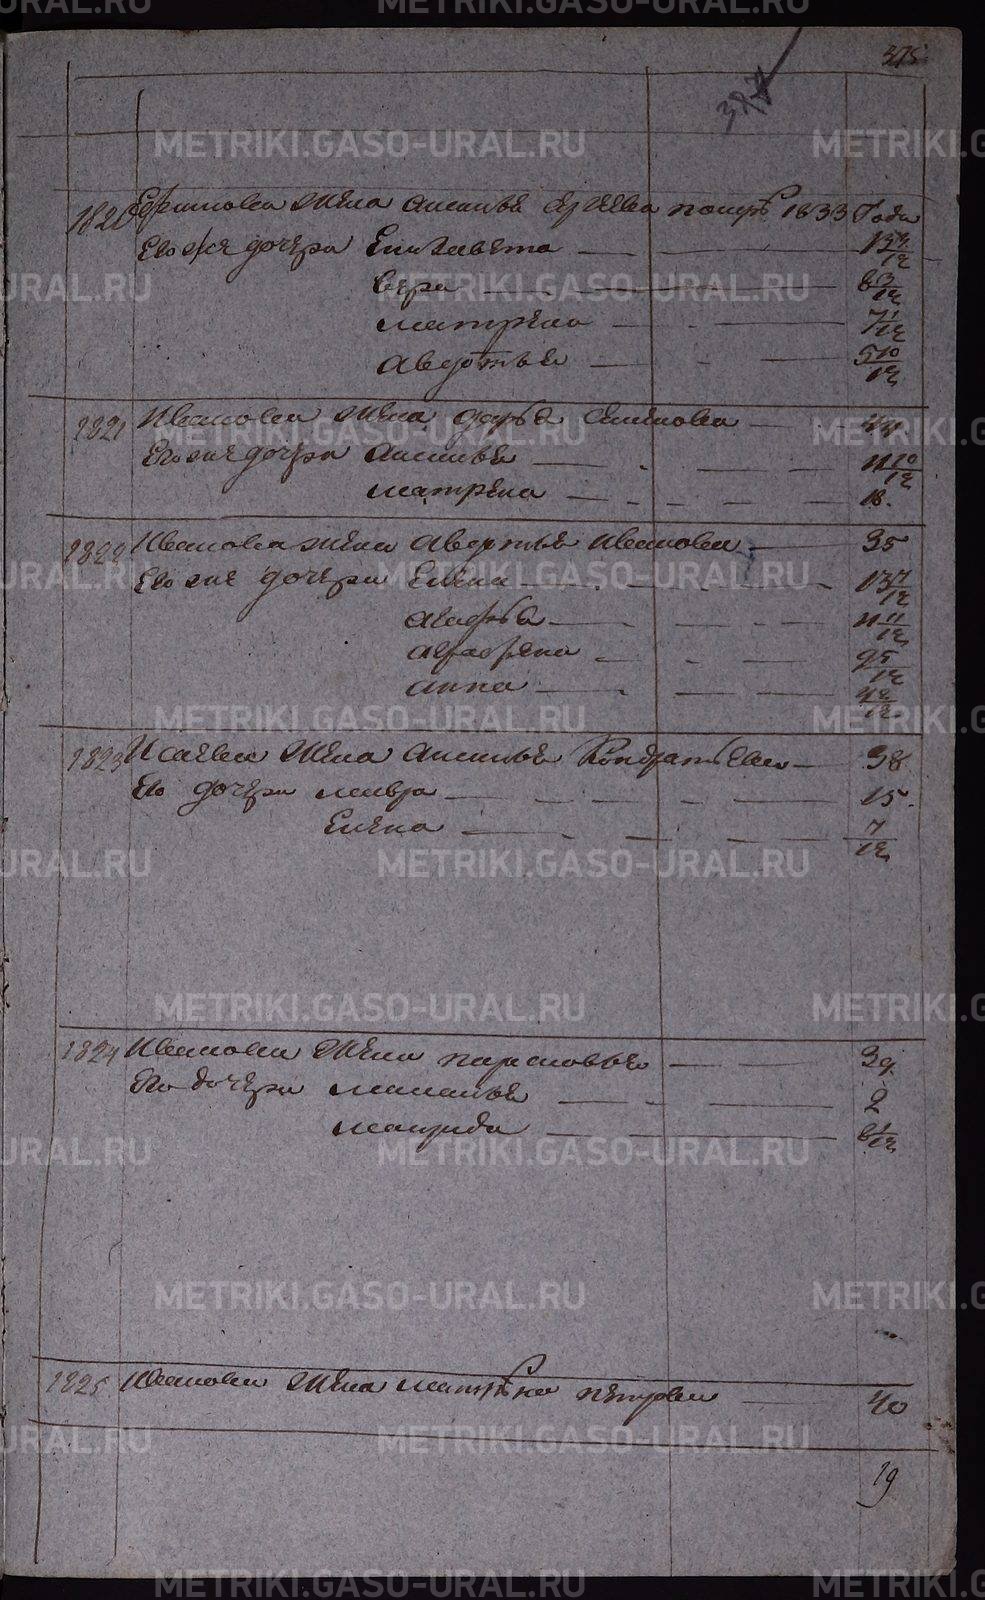 375
387
1820 Ефимова жена Анисья Сергеева помре 1833 Года
Его же дочери Елизавета 13 3/12
Вера 8 3/12
Матрена 7 1/12
Авдотья 5 10/12
1821 Иванова жена Дарья Семенова 44
Его же дочери Анисья 11 10/12
Матрена 18.
1822 Иванова жена Авдотья Иванова 35
Его же дочери Елена 13 7/12
Агафья 11 11/12
Аграфена 9 5/12
Анна 4 2/12
1823 Исаева жена Анисья Кондратьева 38
Его дочери Мавра 15.
Елена 7/12
1824 Иванова жена Парасковья 39.
Его дочери Маланья 2
1/12
1825 Иванова жена Матрена Петрова 40
19
METRIKI.GASO-URAL.RU